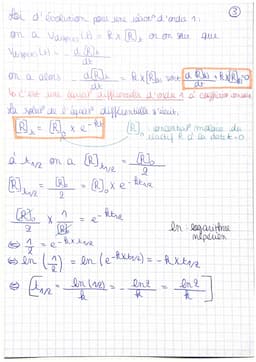 ③
Loi d'évolution pour une réact° d'ordre 1:
on a V disparit° (t) = k x [R]t or on sait que
V disparit° (t) = - d[R]t / dt
on a alors - d[R]t / dt = k x [R]t soit d[R]t / dt + k x [R]t = 0
↳ c'est une équat° différentielle d'ordre 1 à coefficient constant
La solut° de l'équat° différentielle s'écrit:
[R]t = [R]0 x e^-kt
[R]0 concentrat° molaire du réactif R à la date t=0
à t1/2 on a [R]t1/2 = [R]0 / 2
[R]t1/2 = [R]0 / 2 = [R]0 x e^-kt1/2
[R]0 / 2 x 1 / [R]0 = e^-kt1/2
⇔ 1/2 = e^-k x t1/2
ln: logarithme népérien
⇔ ln (1/2) = ln (e^-k x t1/2) = -k x t1/2
⇔ [t1/2 = - ln(1/2) / k = - -ln2 / k = ln2 / k]